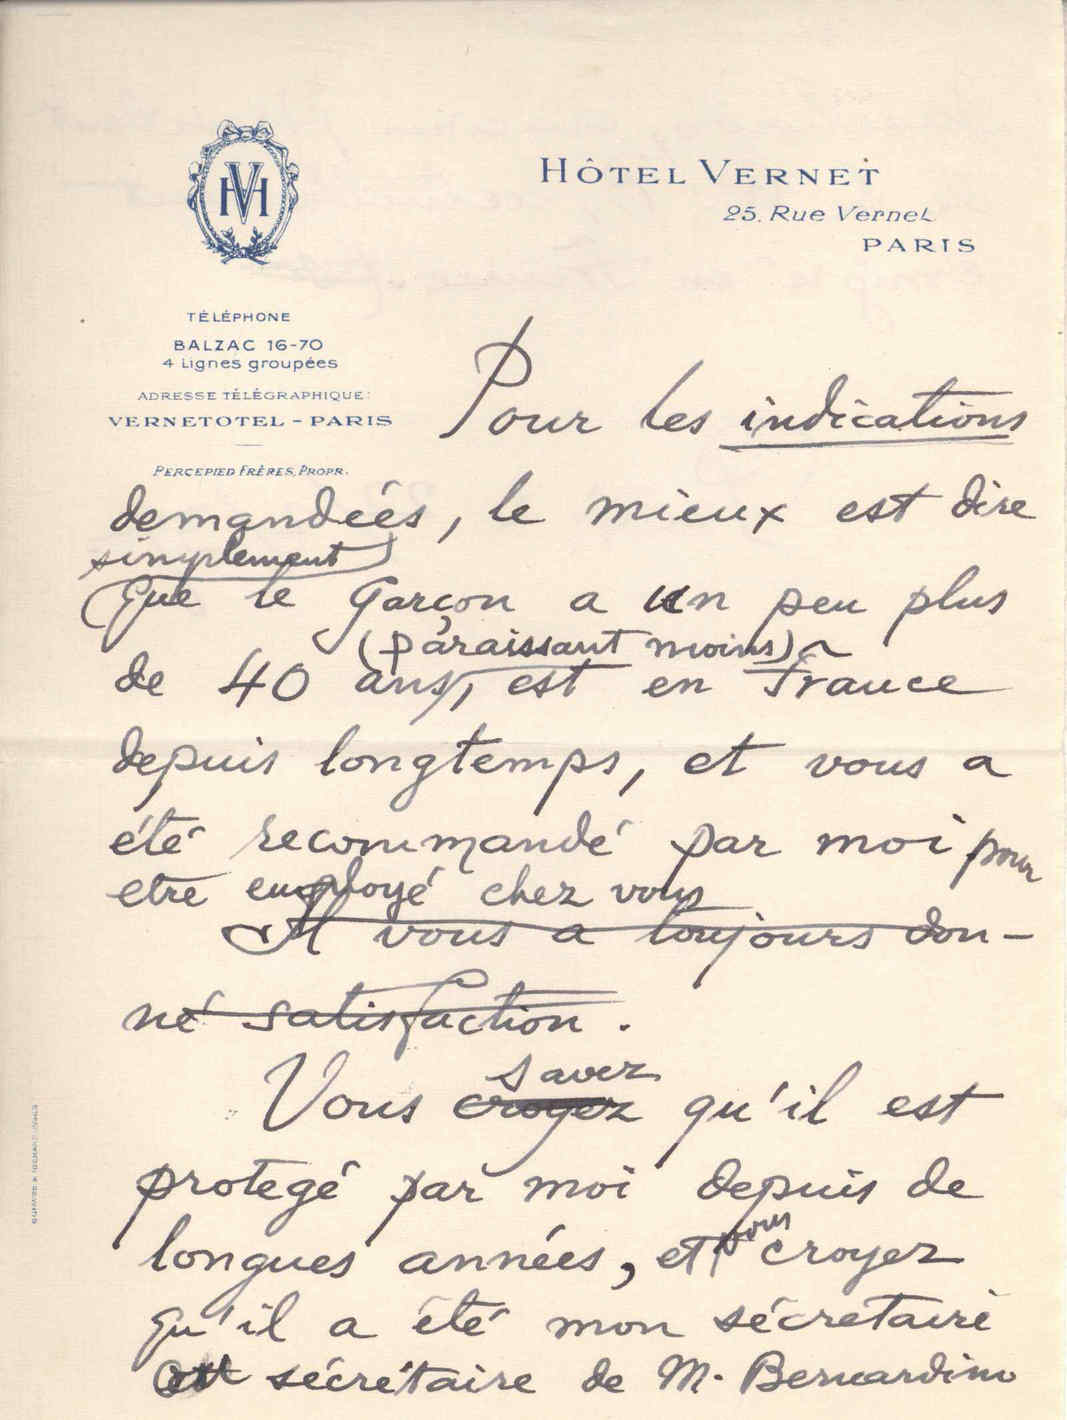 HVH
HÔTEL VERNET
25, Rue Vernet
PARIS
TÉLÉPHONE
BALZAC 16-70
4 Lignes groupées
ADRESSE TÉLÉGRAPHIQUE:
VERNETOTEL - PARIS
PERCEPIED FRÈRES, PROPR.
Pour les indications
demandéés, le mieux est dire
simplement
que le garçon a un peu plus
(paraissant moins)
de 40 ans, est en France
depuis longtemps, et vous a
été recommandé par moi pour
etre employé chez vous
Il vous a toujours don-
né satisfaction.
savez
Vous croyez qu'il est
protegé par moi depuis de
longues années, et vous croyez
qu'il a été mon sécretaire
secrétaire de M. Bernardino